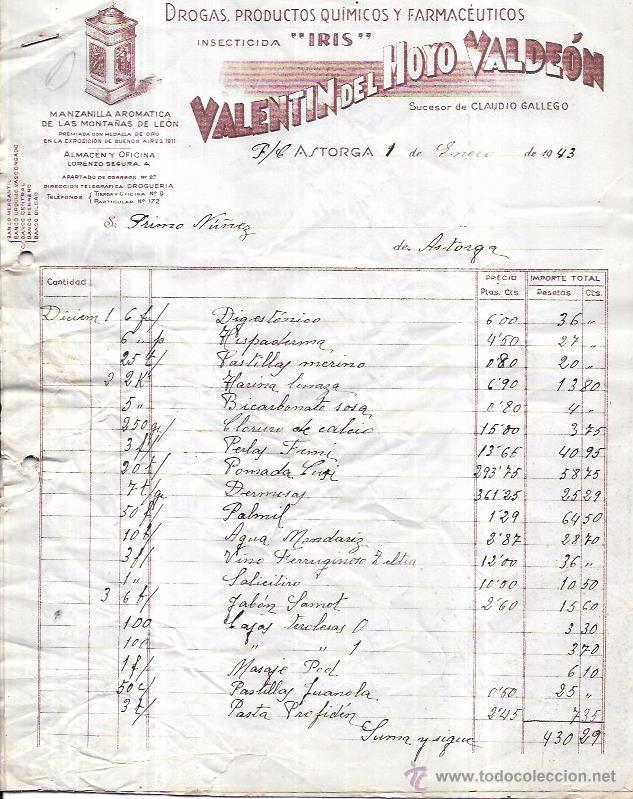 DROGAS, PRODUCTOS QUÍMICOS Y FARMACÉUTICOS
INSECTICIDA "IRIS"
VALENTIN DEL HOYO VALDEÓN
Sucesor de CLAUDIO GALLEGO
MANZANILLA AROMATICA
DE LAS MONTAÑAS DE LEÓN
PREMIADA CON MEDALLA DE ORO
EN LA EXPOSICION DE BUENOS AIRES 1911
ALMACEN Y OFICINA
LORENZO SEGURA, 4.
APARTADO DE CORREOS Nº 27
DIRECCION TELEGRÁFICA: DROGUERIA
TELÉFONOS { TIENDA Y OFICINA Nº 9
PARTICULAR Nº 172
BANCO MERCANTIL
BANCO URQUIJO VASCONGADO
BANCO CENTRAL
BANCO HERRERO
BANCO BILBAO
P/C ASTORGA 1 de Enero de 1943
S. Primo Núñez
de Astorga
Cantidad PRECIO IMPORTE TOTAL
Ptas. Cts. Pesetas Cts.
Diciem 1 6 f/ Digestónico 6'00 36 "
6 " Hispaderma 4'50 27 "
25 t/ Pastillas merino 0'80 20 "
2 2 K Harina linaza 6'90 13 80
5 " Bicarbonato sosa 0'80 4 "
250 gr/ Cloruro de calcio 15'00 3 75
3 f/ Perlas 13'65 40 95
20 t/ Pomada 293'75 58 75
7 t/ Dermosas 361'25 25 29
50 f/ Palmil 1'29 64 50
10 f/ Agua Mondariz 2'87 28 70
3 f/ Vino Ferruginoso 12'00 36 "
1 " 10'50 10 50
3 6 t/ Jabón Samot 2'60 15 60
100 Cajas tirolesas 0 3 30
100 " " 1 3 70
1 f/ Masaje 6 10
50 c/ Pastillas Juanola 0'50 25 "
3 t/ Pasta Profidén 2'45 7 35
Suma y sigue 430 29
www.todocoleccion.net